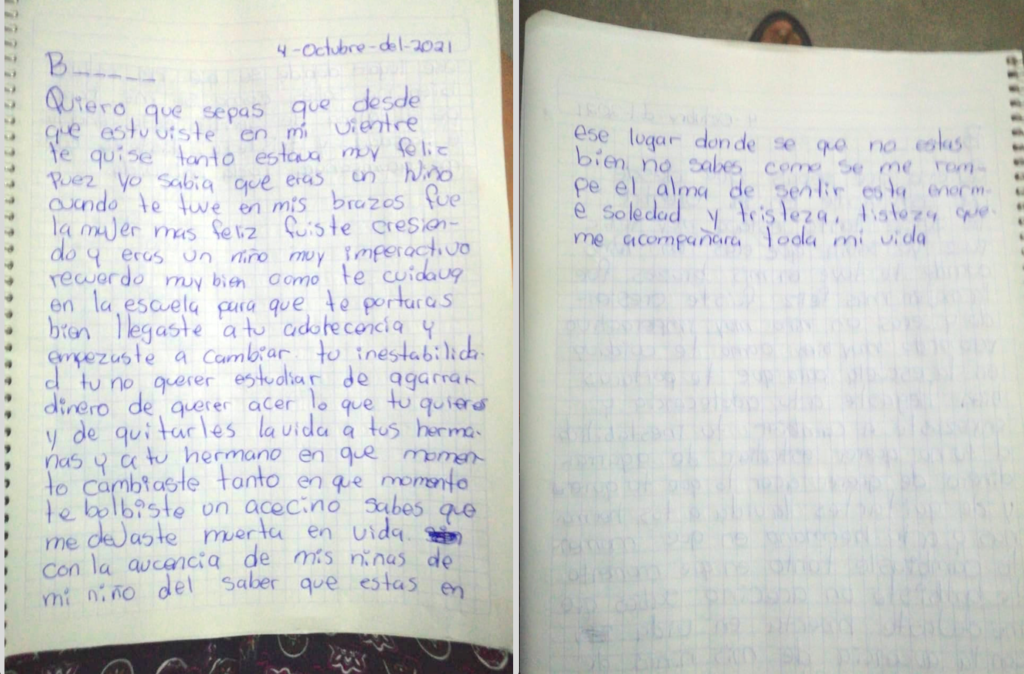 4-Octubre-del-2021
B_____
Quiero que sepas que desde
que estuviste en mi vientre
te quise tanto estava muy feliz
Puez yo sabia que eras un niño
cuando te tuve en mis brazos fue
la mujer mas feliz fuiste cresien-
do y eras un niño muy imperactivo
recuerdo muy bien como te cuidava
en la escuela para que te portaras
bien llegaste a tu adotecencia y
empezaste a cambiar tu inestabilida-
d tu no querer estudiar de agarrar
dinero de querer acer lo que tu quieres
y de quitarles la vida a tus herma-
nas y a tu hermano en que momen
to cambiaste tanto en que momento
te bolbiste un acecino sabes que
me dejaste muerta en vida.
con la aucencia de mis niñas de
mi niño del saber que estas en
ese lugar donde se que no estas
bien no sabes como se me rom-
pe el alma de sentir esta enorm-
e soledad y tristeza, tisteza que
me acompañara toda mi vida